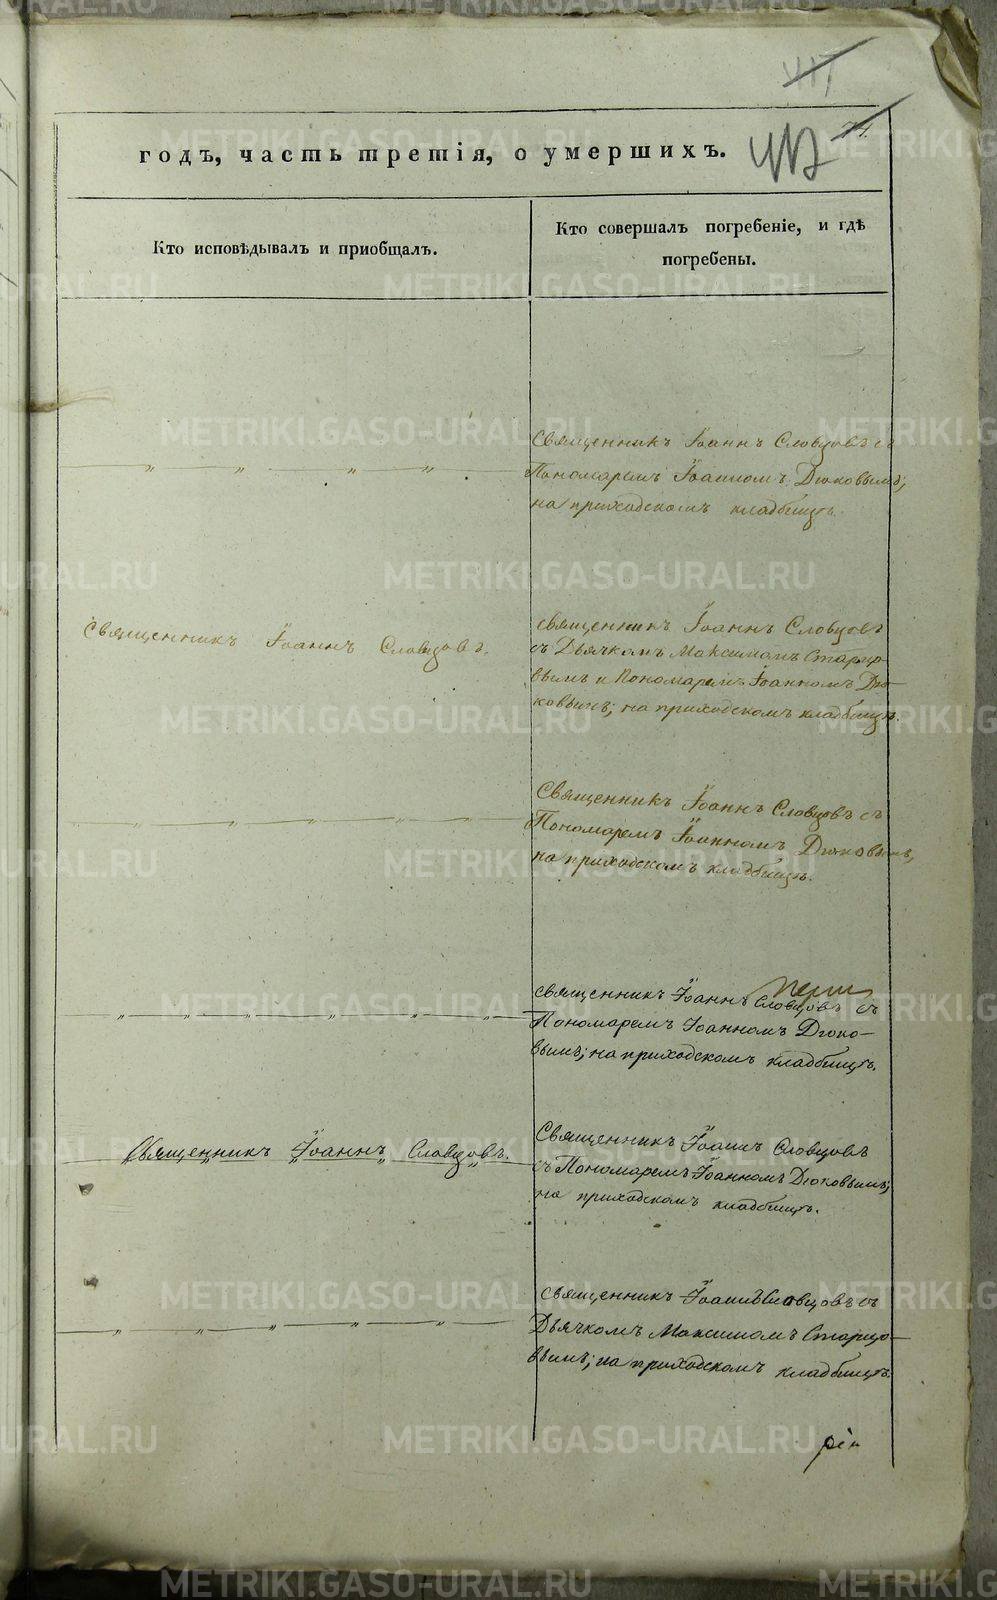 417
74.
417
годъ, часть третія, о умершихъ.
Кто исповѣдывалъ и приобщалъ.
Кто совершалъ погребеніе, и гдѣ
погребены.
" " " "
Священникъ Іоаннъ Словцовъ съ
Пономаремъ Іоанномъ Дюковымъ;
на приходскомъ кладбищѣ.
Священникъ Іоаннъ Словцовъ.
Священникъ Іоаннъ Словцовъ
съ Дьячкомъ Максимомъ Старцо-
вымъ и Пономаремъ Іоанномъ Дю-
ковымъ; на приходскомъ кладбищѣ.
" " " " "
Священникъ Іоаннъ Словцовъ съ
Пономаремъ Іоанномъ Дюковымъ,
на приходскомъ кладбищѣ.
" " " " " "
Священникъ Іоаннъ Словцовъ съ
Пономаремъ Іоанномъ Дюко-
вымъ; на приходскомъ кладбищѣ.
Священникъ Іоаннъ Словцовъ.
Священникъ Іоаннъ Словцовъ
съ Пономаремъ Іоанномъ Дюковымъ;
на приходскомъ кладбищѣ.
" " " " "
Священникъ Іоаннъ Словцовъ съ
Дьячкомъ Максимомъ Старцо-
вымъ; на приходскомъ кладбищѣ.
METRIKI.GASO-URAL.RU